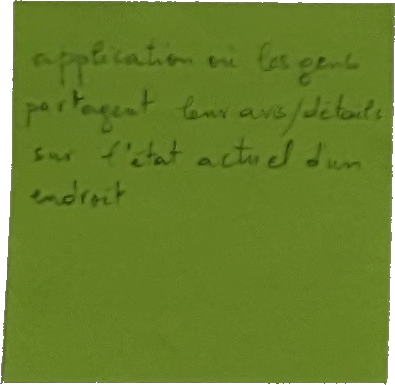 application où les gens
partagent leur avis/détails
sur l'état actuel d'un
endroit